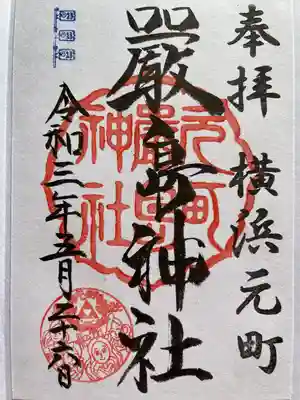 奉拝 横浜元町
嚴島神社
元町
嚴島
神社
令和三年五月二十六日